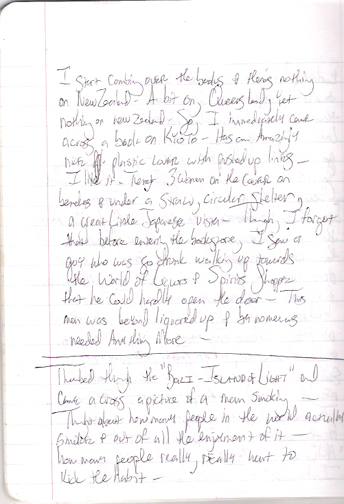 I start combing over the books & there's nothing
on New Zealand - A bit on Queensland, yet
nothing on new zealand - So, I immediately came
across a book on Kioto - Has an Amazingly
nice plastic cover with posed up lines -
I like it - There's 3 women on the cover on
benches & under a straw, circular shelter,
a great little Japanese vision - Though, I forgot
that before entering the bookstore, I saw a
guy who was so drunk walking up towards
the World of Liquors & Spirits Shoppe
that he could hardly open the door - This
man was beyond liquored up & by no means
needed Anything More -
Thumbed through the "BALI - ISLAND of LIGHT" and
came across a picture of a man smoking -
Thinks about how many people in the world actually
smoke & out of all the enjoyment of it -
how many people really, really want to
Kick the habit -